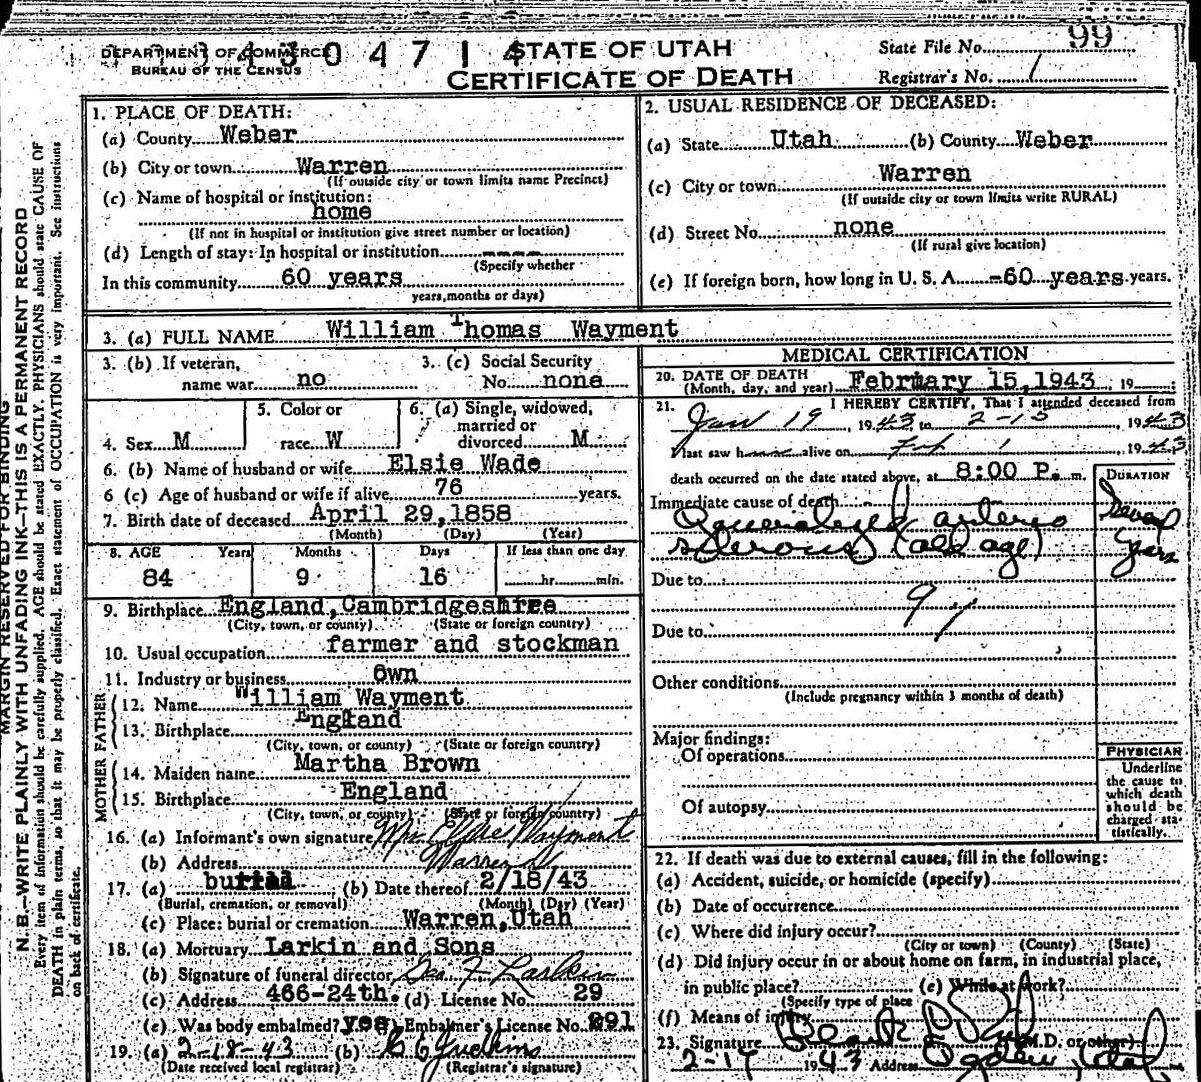 DEPARTMENT OF COMMERCE
BUREAU OF THE CENSUS
430471
STATE OF UTAH
CERTIFICATE OF DEATH
State File No. 99
Registrar's No. 1
MARGIN RESERVED FOR BINDING
N. B.—WRITE PLAINLY WITH UNFADING INK—THIS IS A PERMANENT RECORD
Every item of information should be carefully supplied. AGE should be stated EXACTLY. PHYSICIANS should state CAUSE OF
DEATH in plain terms, so that it may be properly classified. Exact statement of OCCUPATION is very important. See instructions
on back of certificate.
1. PLACE OF DEATH:
(a) County Weber
(b) City or town Warren
(If outside city or town limits name Precinct)
(c) Name of hospital or institution:
home
(If not in hospital or institution give street number or location)
(d) Length of stay: In hospital or institution ----
(Specify whether
In this community 60 years
years, months or days)
2. USUAL RESIDENCE OF DECEASED:
(a) State Utah (b) County Weber
(c) City or town Warren
(If outside city or town limits write RURAL)
(d) Street No. none
(If rural give location)
(e) If foreign born, how long in U. S. A. -60 years years.
3. (a) FULL NAME William Thomas Wayment
3. (b) If veteran, name war no
3. (c) Social Security No. none
4. Sex M
5. Color or race W
6. (a) Single, widowed, married or divorced M
6. (b) Name of husband or wife Elsie Wade
6 (c) Age of husband or wife if alive 76 years.
7. Birth date of deceased April 29,1858
(Month) (Day) (Year)
8. AGE Years Months Days If less than one day
84 9 16 hr. min.
9. Birthplace England, Cambridgeshire
(City, town, or county) (State or foreign country)
10. Usual occupation farmer and stockman
11. Industry or business Own
FATHER
12. Name William Wayment
13. Birthplace England
(City, town, or county) (State or foreign country)
MOTHER
14. Maiden name Martha Brown
15. Birthplace England
(City, town, or county) (State or foreign country)
16. (a) Informant's own signature Mrs Elsie Wayment
(b) Address Warren U
17. (a) burial (b) Date thereof 2/18/43
(Burial, cremation, or removal) (Month) (Day) (Year)
(c) Place: burial or cremation Warren, Utah
18. (a) Mortuary Larkin and Sons
(b) Signature of funeral director Geo. F Larkin
(c) Address 466-24th. (d) License No. 29
(e) Was body embalmed? yes Embalmer's License No. 291
19. (a) 2-18-43 (b)
(Date received local registrar) (Registrar's signature)
MEDICAL CERTIFICATION
20. DATE OF DEATH
(Month, day, and year) February 15,1943, 19 ;
21. I HEREBY CERTIFY, That I attended deceased from
Jan 19, 1943 to 2-15, 1943
I last saw h alive on Feb 1, 1943
death occurred on the date stated above, at 8:00 P. m.
DURATION
Immediate cause of death
Generalized arterio
sclerosis (old age)
Several
years
Due to
97
Due to
Other conditions
(Include pregnancy within 3 months of death)
Major findings:
Of operations
Of autopsy
PHYSICIAN
Underline
the cause to
which death
should be
charged sta-
tistically.
22. If death was due to external causes, fill in the following:
(a) Accident, suicide, or homicide (specify)
(b) Date of occurrence
(c) Where did injury occur?
(City or town) (County) (State)
(d) Did injury occur in or about home on farm, in industrial place,
in public place? (e) While at work?
(Specify type of place
(f) Means of injury
23. Signature (M.D. or other)
2-17 1943 Address Ogden, Utah